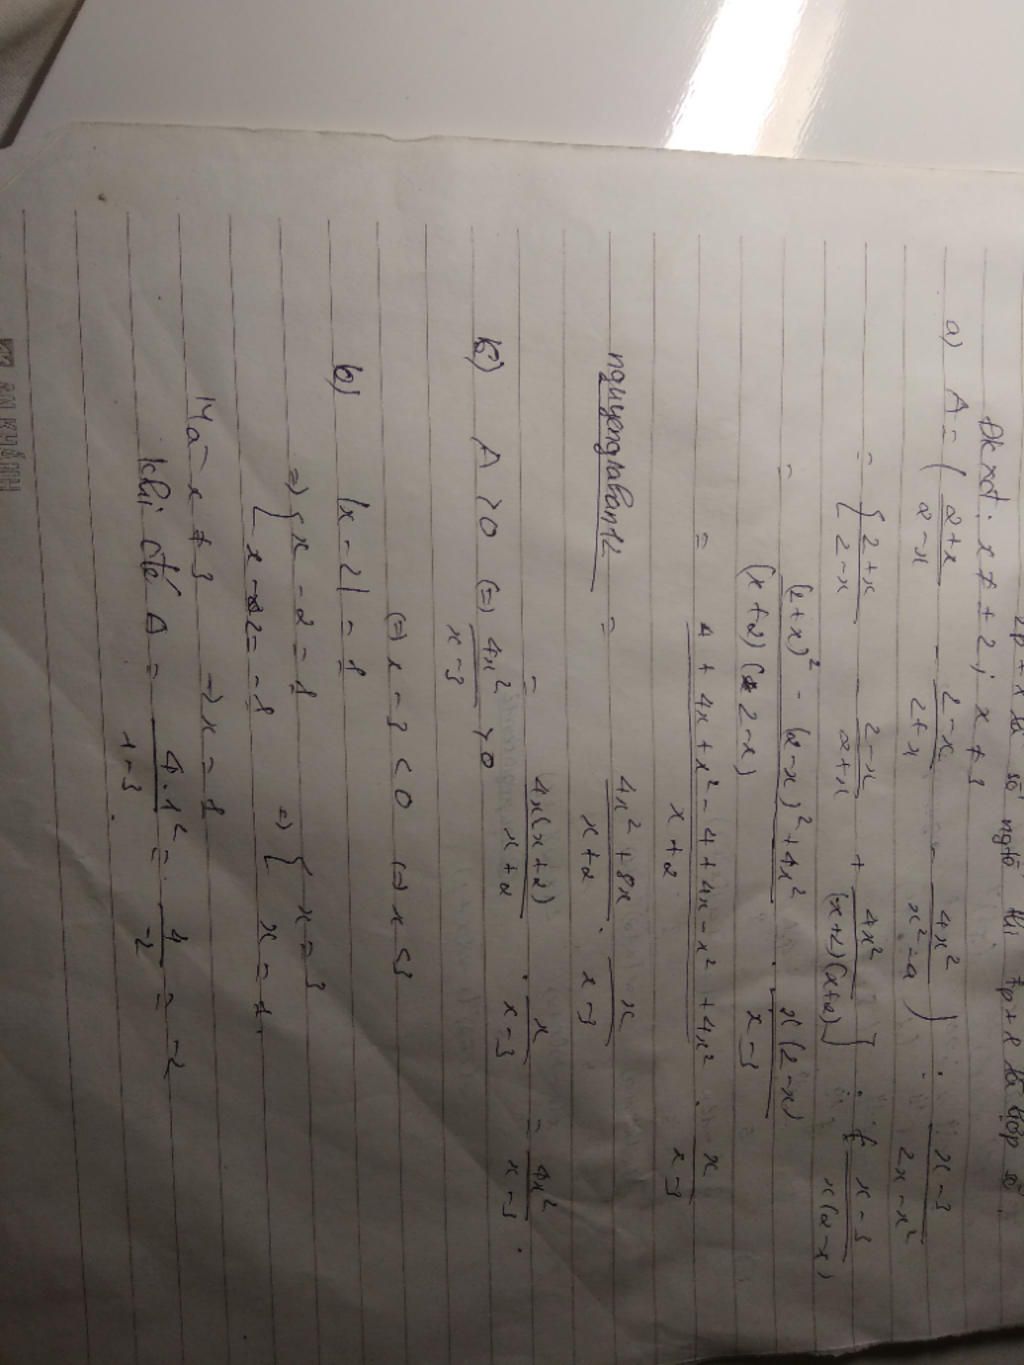 2p+1 là số nghũ thì 7p+1 là hợp số.
Đkxđ: x ≠ ±2; x ≠ 3
a) A = ( 2+x / 2-x - 2-x / 2+x - 4x² / x²-4 ) : x-3 / 2x-x²
= { 2+x / 2-x - 2-x / 2+x + 4x² / (x+2)(x+2) } : x-3 / x(2-x)
= (2+x)² - (2-x)² + 4x² / (x+2)(2-x) . x(2-x) / x-3
= 4 + 4x + x² - 4 + 4x - x² + 4x² / x+2 . x / x-3
nguyengiahanh12 = 4x² + 8x / x+2 . x / x-3
= 4x(x+2) / x+2 . x / x-3 = 4x² / x-3 .
b) A > 0 (=) 4x² / x-3 > 0
(=) x - 3 < 0 (=) x < 3
b) |x-2| = 1
=) { x - 2 = 1 =) { x = 3
{ x - 2 = -1 x = 1.
Mà x ≠ 3 → x = 1
Khi đó A = 4.1² / 1-3 = 4 / -2 = -2